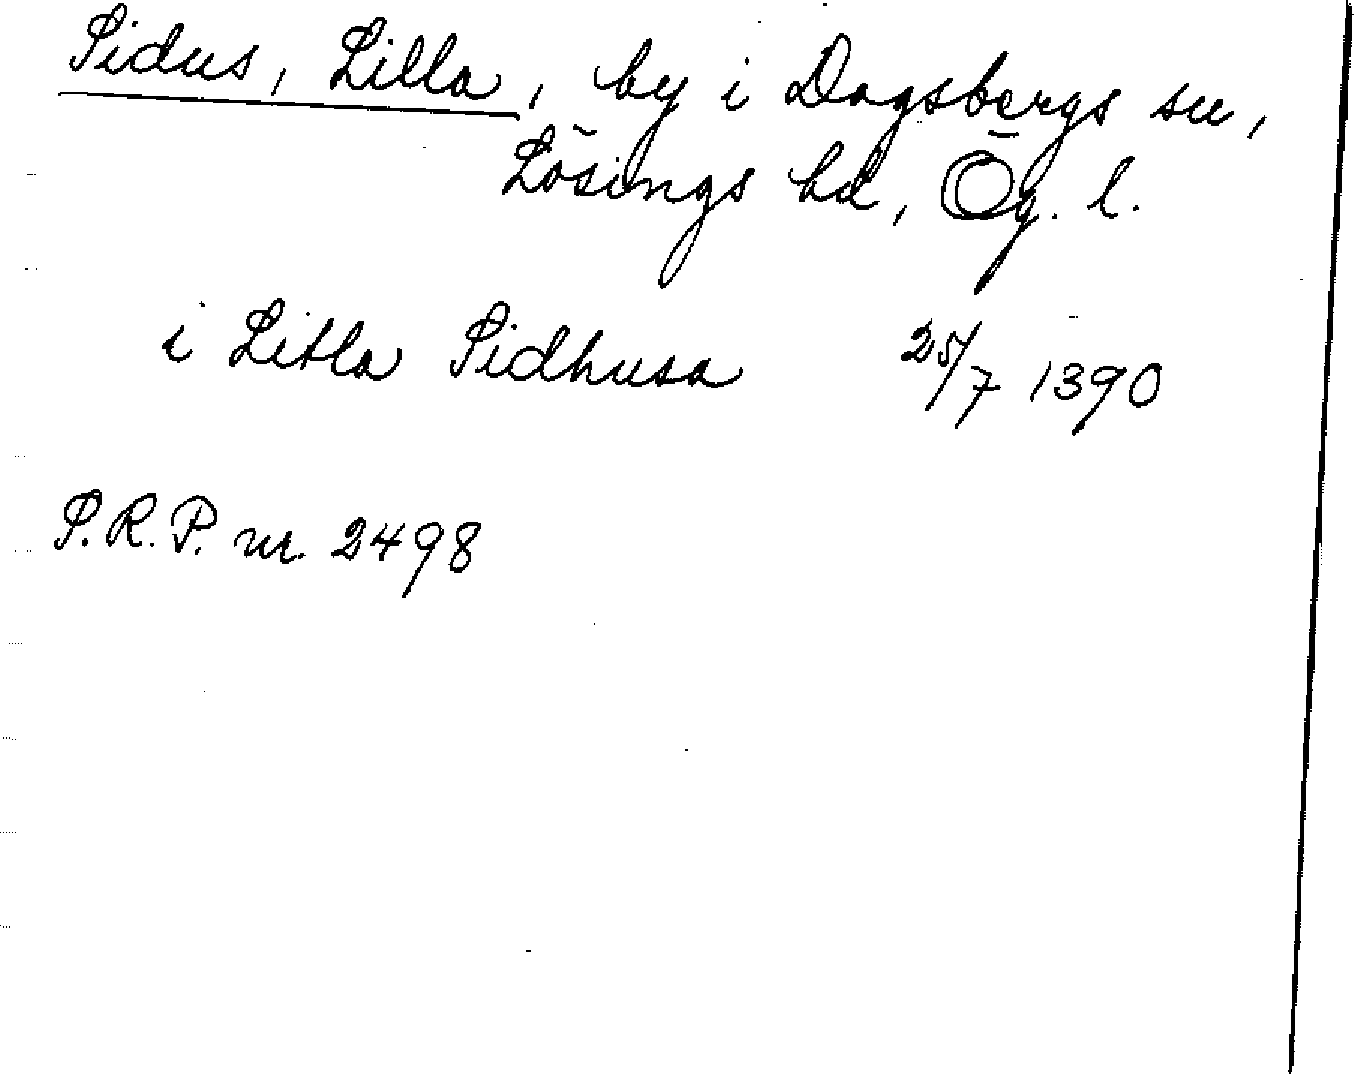 Sidus, Lilla, by i Dagsbergs sn,
Lösings hd, Ög. l.
i Litla Sidhusa 25/7 1390
S.R.P. nr. 2498